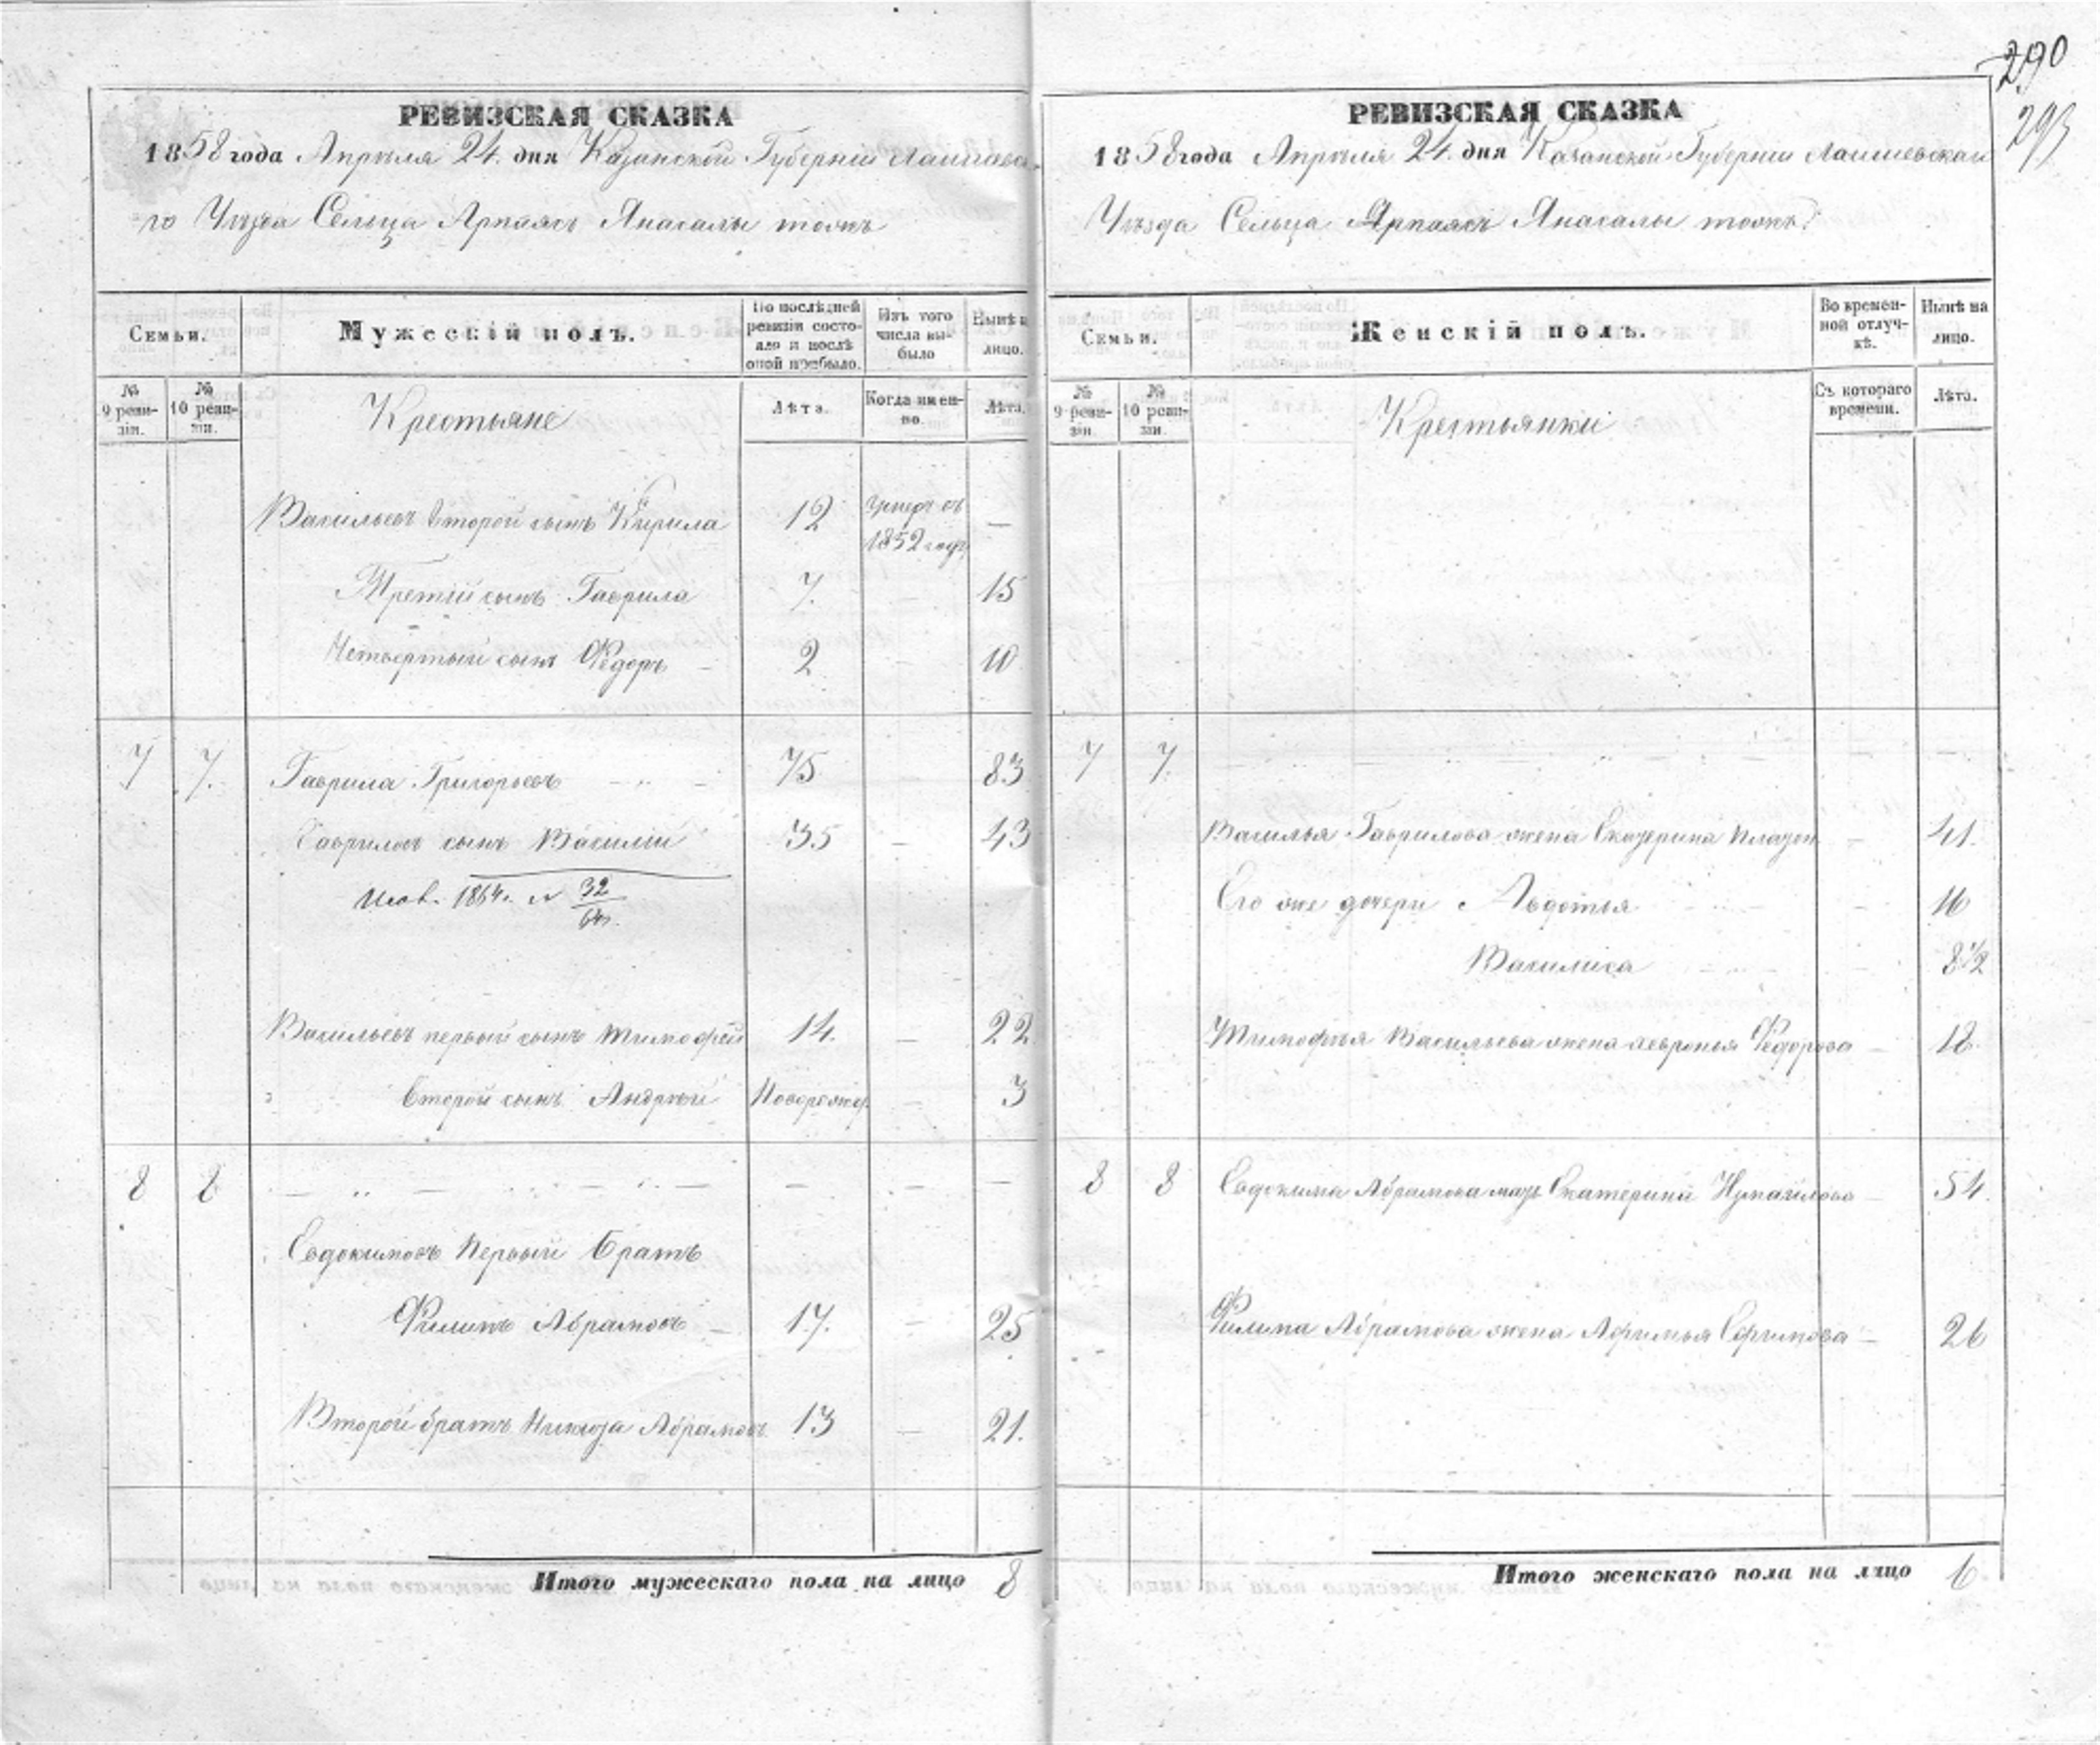 290
293
РЕВИЗСКАЯ СКАЗКА
1858 года Апрѣля 24. дня Казанской Губерніи Лаишевска-
го Уѣзда Сельца Арпаясъ Янасалы тожъ
Семьи.
Мужескій полъ.
По послѣдней ревизіи состояло и послѣ оной прибыло.
Изъ того числа выбыло
Нынѣ на лицо.
№ 9 ревизіи.
№ 10 ревизіи.
Крестьяне
Лѣта.
Когда именно.
Лѣта.
Васильевъ второй сынъ Кирила 12 умеръ въ 1852 году —
Третій сынъ Гаврила 7. — 15
Четвертый сынъ Ѳедоръ — 2 — 10
7 7. Гаврила Григорьевъ 75 — 83
Гавриловъ сынъ Василій 35 — 43
1864. № 32/64.
Васильевъ первый сынъ Тимофей 14. — 22
Второй сынъ Андрей Новорожд. — 3
8 8 — — — — — — —
Евдокимовъ Первый братъ
Филипъ Абрамовъ — 17. — 25
Второй братъ Никита Абрамовъ 13 — 21.
Итого мужескаго пола на лицо 8
РЕВИЗСКАЯ СКАЗКА
1858 года Апрѣля 24. дня Казанской Губерніи Лаишевскаго
Уѣзда Сельца Арпаясъ Янасалы тожъ
Семьи.
Женскій полъ.
Во временной отлучкѣ.
Нынѣ на лицо.
№ 9 ревизіи.
№ 10 ревизіи.
Крестьянки
Съ котораго времени.
Лѣта.
7 7. — — — —
Василья Гаврилова жена Екатерина — 41.
Его же дочери Авдотья — 16
Василиса — 8 1/2
Тимофея Васильева жена Февронья Ѳедорова — 18.
8 8 Евдокима Абрамова мать Екатерина Измайлова — 54.
Филипа Абрамова жена Афимья Ефимова — 26
Итого женскаго пола на лицо 6